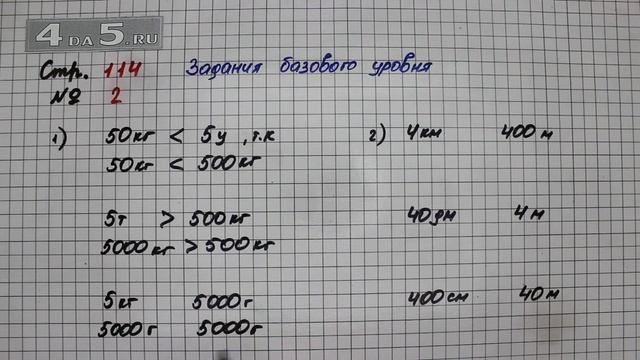 4DA5.RU
Стр. 114 Задания базового уровня
№ 2
1) 50кг < 5ц, т.к
50кг < 500кг
5т > 500кг
5000кг > 500кг
5кг 5000г
5000г 5000г
2) 4км 400м
40дм 4м
400см 40м